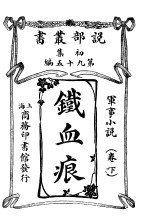 說部叢書
初集
第九十五編
軍事小說
（卷下）
鐵血痕
上海商務印書館發行